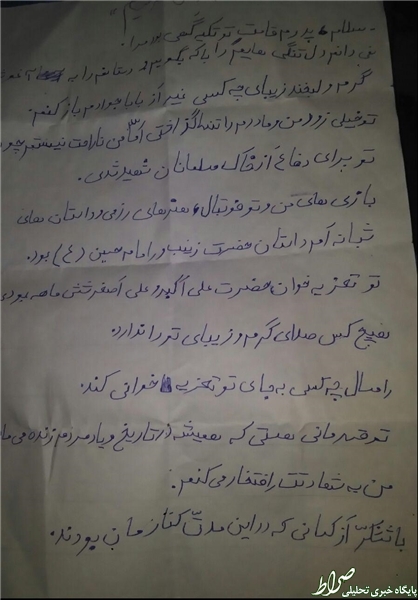 سلام بر پدرم قامت تو تکیه گهی بود مرا.
نمی دانم دل تنگی هایم را با که بگویم و دستانم را به
گرم و لبخند زیبای چه کسی غیر از بابا جوادم باز کنم.
تو خیلی زود من و مادرم را تنها گذاشتی اما من ناراحت نیستم چون
تو برای دفاع از خاک مسلمانان شهید شدی.
بازی های من و تو فوتبال و هنرهای رزمی و داستان های
شبانه ام داستان حضرت زینب و امام حسین (ع) بود.
تو تعزیه خوان حضرت علی اکبر و علی اصغر شش ماهه بودی
هیچ کس صدای گرم و زیبای تو را ندارد.
امسال چه کسی به جای تو تعزیه خوانی کند.
تو قهرمانی هستی که همیشه در تاریخ و یاد مردم زنده می ما
من به شهادتت افتخار می کنم.
با تشکر از کسانی که در این مدت کنارمان بودند.
صراط
پایگاه خبری تحلیلی